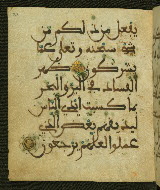 يفعل من ذلكم من
شى سبحنه وتعلى عما
يشركون ظهر
الفساد فى البر والبحر
بما كسبت ايدى الناس
ليذيقهم بعض الذى
عملوا لعلهم يرجعون